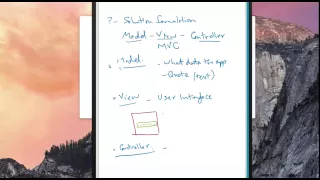 ?- Solution formulation
Model - View - Controller
MVC
• Model: - What data the App
- Quote (text)
• View - User Interface
• Controller -